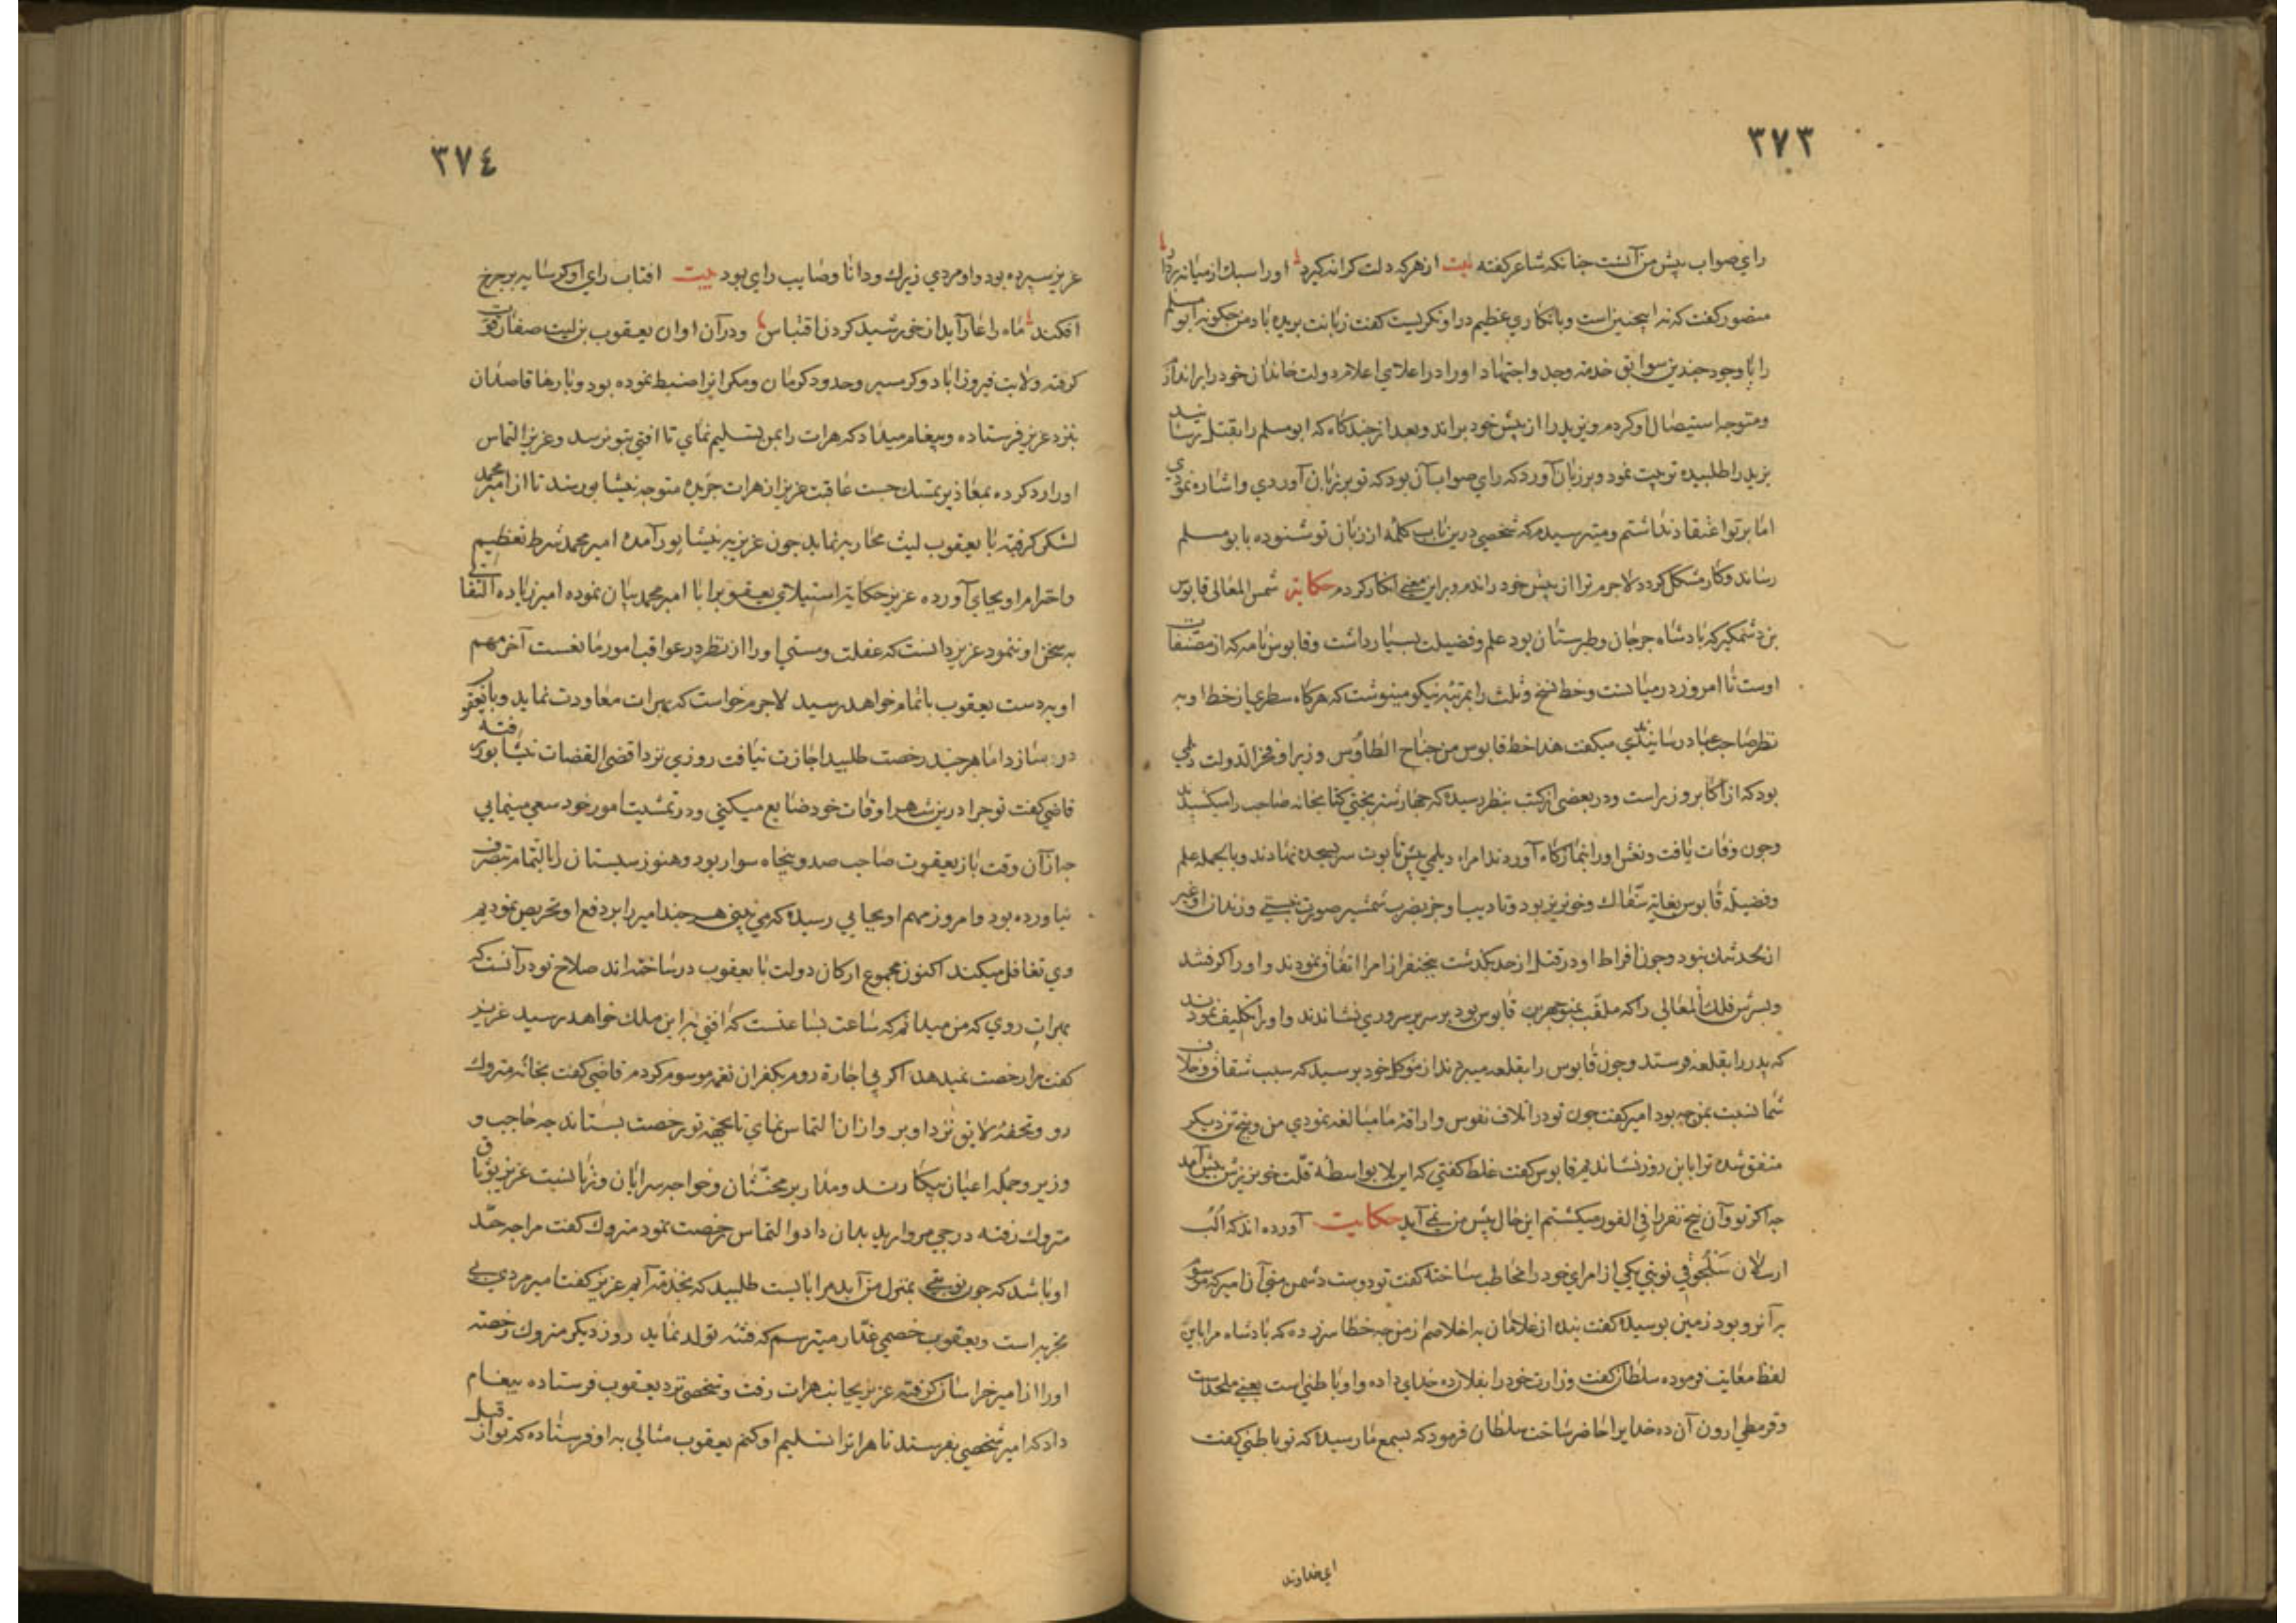 ٣٧٣
راي صواب پيش من آنست چنانكه شاعر كفته بيت از هركه دلت كرانه كيرد اورا سبك از ميانه بردار
منصور كفت كه نه اينچنين است وبانكاري عظيم در او نكريست كفت زبانت بريده باد من چكونه ابو مسلم
را با وجود چندين سوابق خدمة وجد واجتهاد اورا در اعلاي اعلام دولت خاندان خود را براندازم
ومتوجه استيصال او كردم ويزيد را از پيش خود براند وبعد از چندكاه كه ابو مسلم را بقتل رسانيد
يزيد را طلبيده تربيت نمود وبر زبان آورد كه راي صواب آن بود كه تو بر زبان آوردي واشاره نمودي
اما بر تو اعتقاد نداشتم وميترسيدم كه شخصي درين باب كلمه از زبان تو شنوده بابو مسلم
رساند وكار مشكل كردد لاجرم ترا از پيش خود راندم وبراين معني انكار كردم حكاية شمس المعالى قابوس
بن وشمكير كه پادشاه جرجان وطبرستان بود علم وفضيلت بسيار داشت وقابوس نامه كه از مصنفات
اوست تا امروز در ميانست وخط نسخ وثلث را بمرتبه نيكو مينوشت كه هركاه سطري از خط او به
نظر صاحب عباد رسانيدندي ميكفت هذا خط قابوس من جناح الطاوس وزير او فخر الدولت ديلمي
بود كه از اكابر وزير است ودر بعضى از كتب بنظر رسيده كه چهار شتر بختي كتابخانه صاحب را ميكشيدند
وچون وفات يافت ونعش اورا بنمازكاه آوردند امراء ديلمي پيش تابوت سر بسجده نهادند وبالجمله علم
وفضيلة قابوس بغاية سفاك وخونريز بود وتاديب او جز بضرب شمشير صورت نبستي وزندان او غير
از لحد تنك نبود وچون افراط او در قتل از حد بكذشت پنج نفر از امرا اتفاق نمودند واورا كرفتند
وپسرش فلك المعالى را كه ملقب بمنوچهر بن قابوس بود بر سرير سروري نشاندند واورا تكليف نمودند
كه پدر را بقلعه فرستد وچون قابوس را بقلعه ميبردند از موكل خود پرسيد كه سبب شقاق وخلاف
شما نسبت بمن چه بود امير كفت چون تو در اتلاف نفوس واراقة دما مبالغه نمودي من وپنج تن ديكر
متفق شده ترا باين روز نشانديم قابوس كفت غلط كفتي كه اين بلا بواسطه قلت خونريزش پيش آمد
چه اكر تو وآن پنج نفر را في الفور ميكشتم اين حال پيش من نمي آيد حكايت آورده اند كه الب
ارسلان سلجوقي نوبتي يكي از امراي خود را مخاطب ساخته كفت تو دوست دشمن مني آن امير كه موسوم
به آنرو بود زمين بوسيده كفت بنده از غلامان با اخلاصم از من چه خطا سرزده كه پادشاه مرا باين
لفظ معاتب فرموده سلطان كفت وزارت خود را بفلان ده خداي داده واو باطني است يعني ملحداست
وقرمطي ارون آن ده خدايرا حاضر ساخت سلطان فرمود كه بسمع ما رسيده كه تو باطني كفت
اي خداوند
٣٧٤
عزيز سپرده بود واو مردي زيرك ودانا وصايب راي بود بيت افتاب راي او كر سايه بر چرخ
افكند ماه را عار آيد از خورشيد كردن اقتباس ودر آن اوان يعقوب بن ليث صفار قوت
كرفته ولايت فيروزاباد وكرمسير وحدود كرمان ومكرانرا ضبط نموده بود وبارها قاصدان
بنزد عزيز فرستاده وپيغام ميداد كه هرات را بمن تسليم نماي تا افتي بتو نرسد وعزيز التماس
اورا رد كرده بمعاذير تمسك جست عاقبت عزيز از هرات جريده متوجه نيشابور شد تا از امير محمد
لشكر كرفته با يعقوب ليث محاربه نمايد چون عزيز به نيشابور آمده امير محمد شرط تعظيم
واحترام او بجاي آورده عزيز حكاية استيلاي يعقوب را با امير محمد بيان نموده امير زياده التفاتي
به سخن او ننمود عزيز دانست كه غفلت ومستي اورا از نظر در عواقب امور مانعست آخر مهم
او بر دست يعقوب باتمام خواهد رسيد لاجرم خواست كه بهرات معاودت نمايد وبا يعقوب
در بسازد اما هر چند رخصت طلبيد اجازت نيافت روزي نزد اقضى القضات نيشابور رفته
قاضي كفت تو چرا درين شهر اوقات خود ضايع ميكني ودر تمشيت امور خود سعي مينمايي
چه از آن وقت باز يعقوب صاحب صد وپنجاه سوار بود وهنوز سيستان را بالتمام بتصرف
نياورده بود وامروز مهم او بجايي رسيده كه مي بيني هر چند امير را بر دفع او تحريص نموديم
وي تغافل ميكند اكنون مجموع اركان دولت با يعقوب در ساخته اند صلاح تو در آنست كه
بهرات روي كه من ميدانم كه ساعت بساعتست كه افتي به اين ملك خواهد رسيد عزيز
كفت مرا رخصت نميدهد اكر بي اجازة روم بكفران نعمه موسوم كردم قاضي كفت بخانه متروك
رو وتحفه لايق نزد او بر واز ان التماس نماي تا بجهة تو رخصت بستاند چه حاجب و
وزير وجمله اعيان بيكارند ومدار بر مخنثان وخواجه سرايان وزنانست عزيز بوثاق
متروك رفته درجي مرواريد بدان داد والتماس رخصت نمود متروك كفت مرا چه حد
او باشد كه چون تويي بمنزل من آيد مرا بايست طلبيد كه بخدمة آيم عزيز كفت امير مردي بي
تجربه است ويعقوب خصمي غدار ميترسم كه فتنه تولد نمايد روز ديكر متروك رخصة
اورا از امير خراسان كرفته عزيز بجانب هرات رفت وشخصي نزد يعقوب فرستاده پيغام
داد كه امير شخصي بفرستد تا هراترا تسليم او كنم يعقوب مثالي به او فرستاده كه تو از قبل